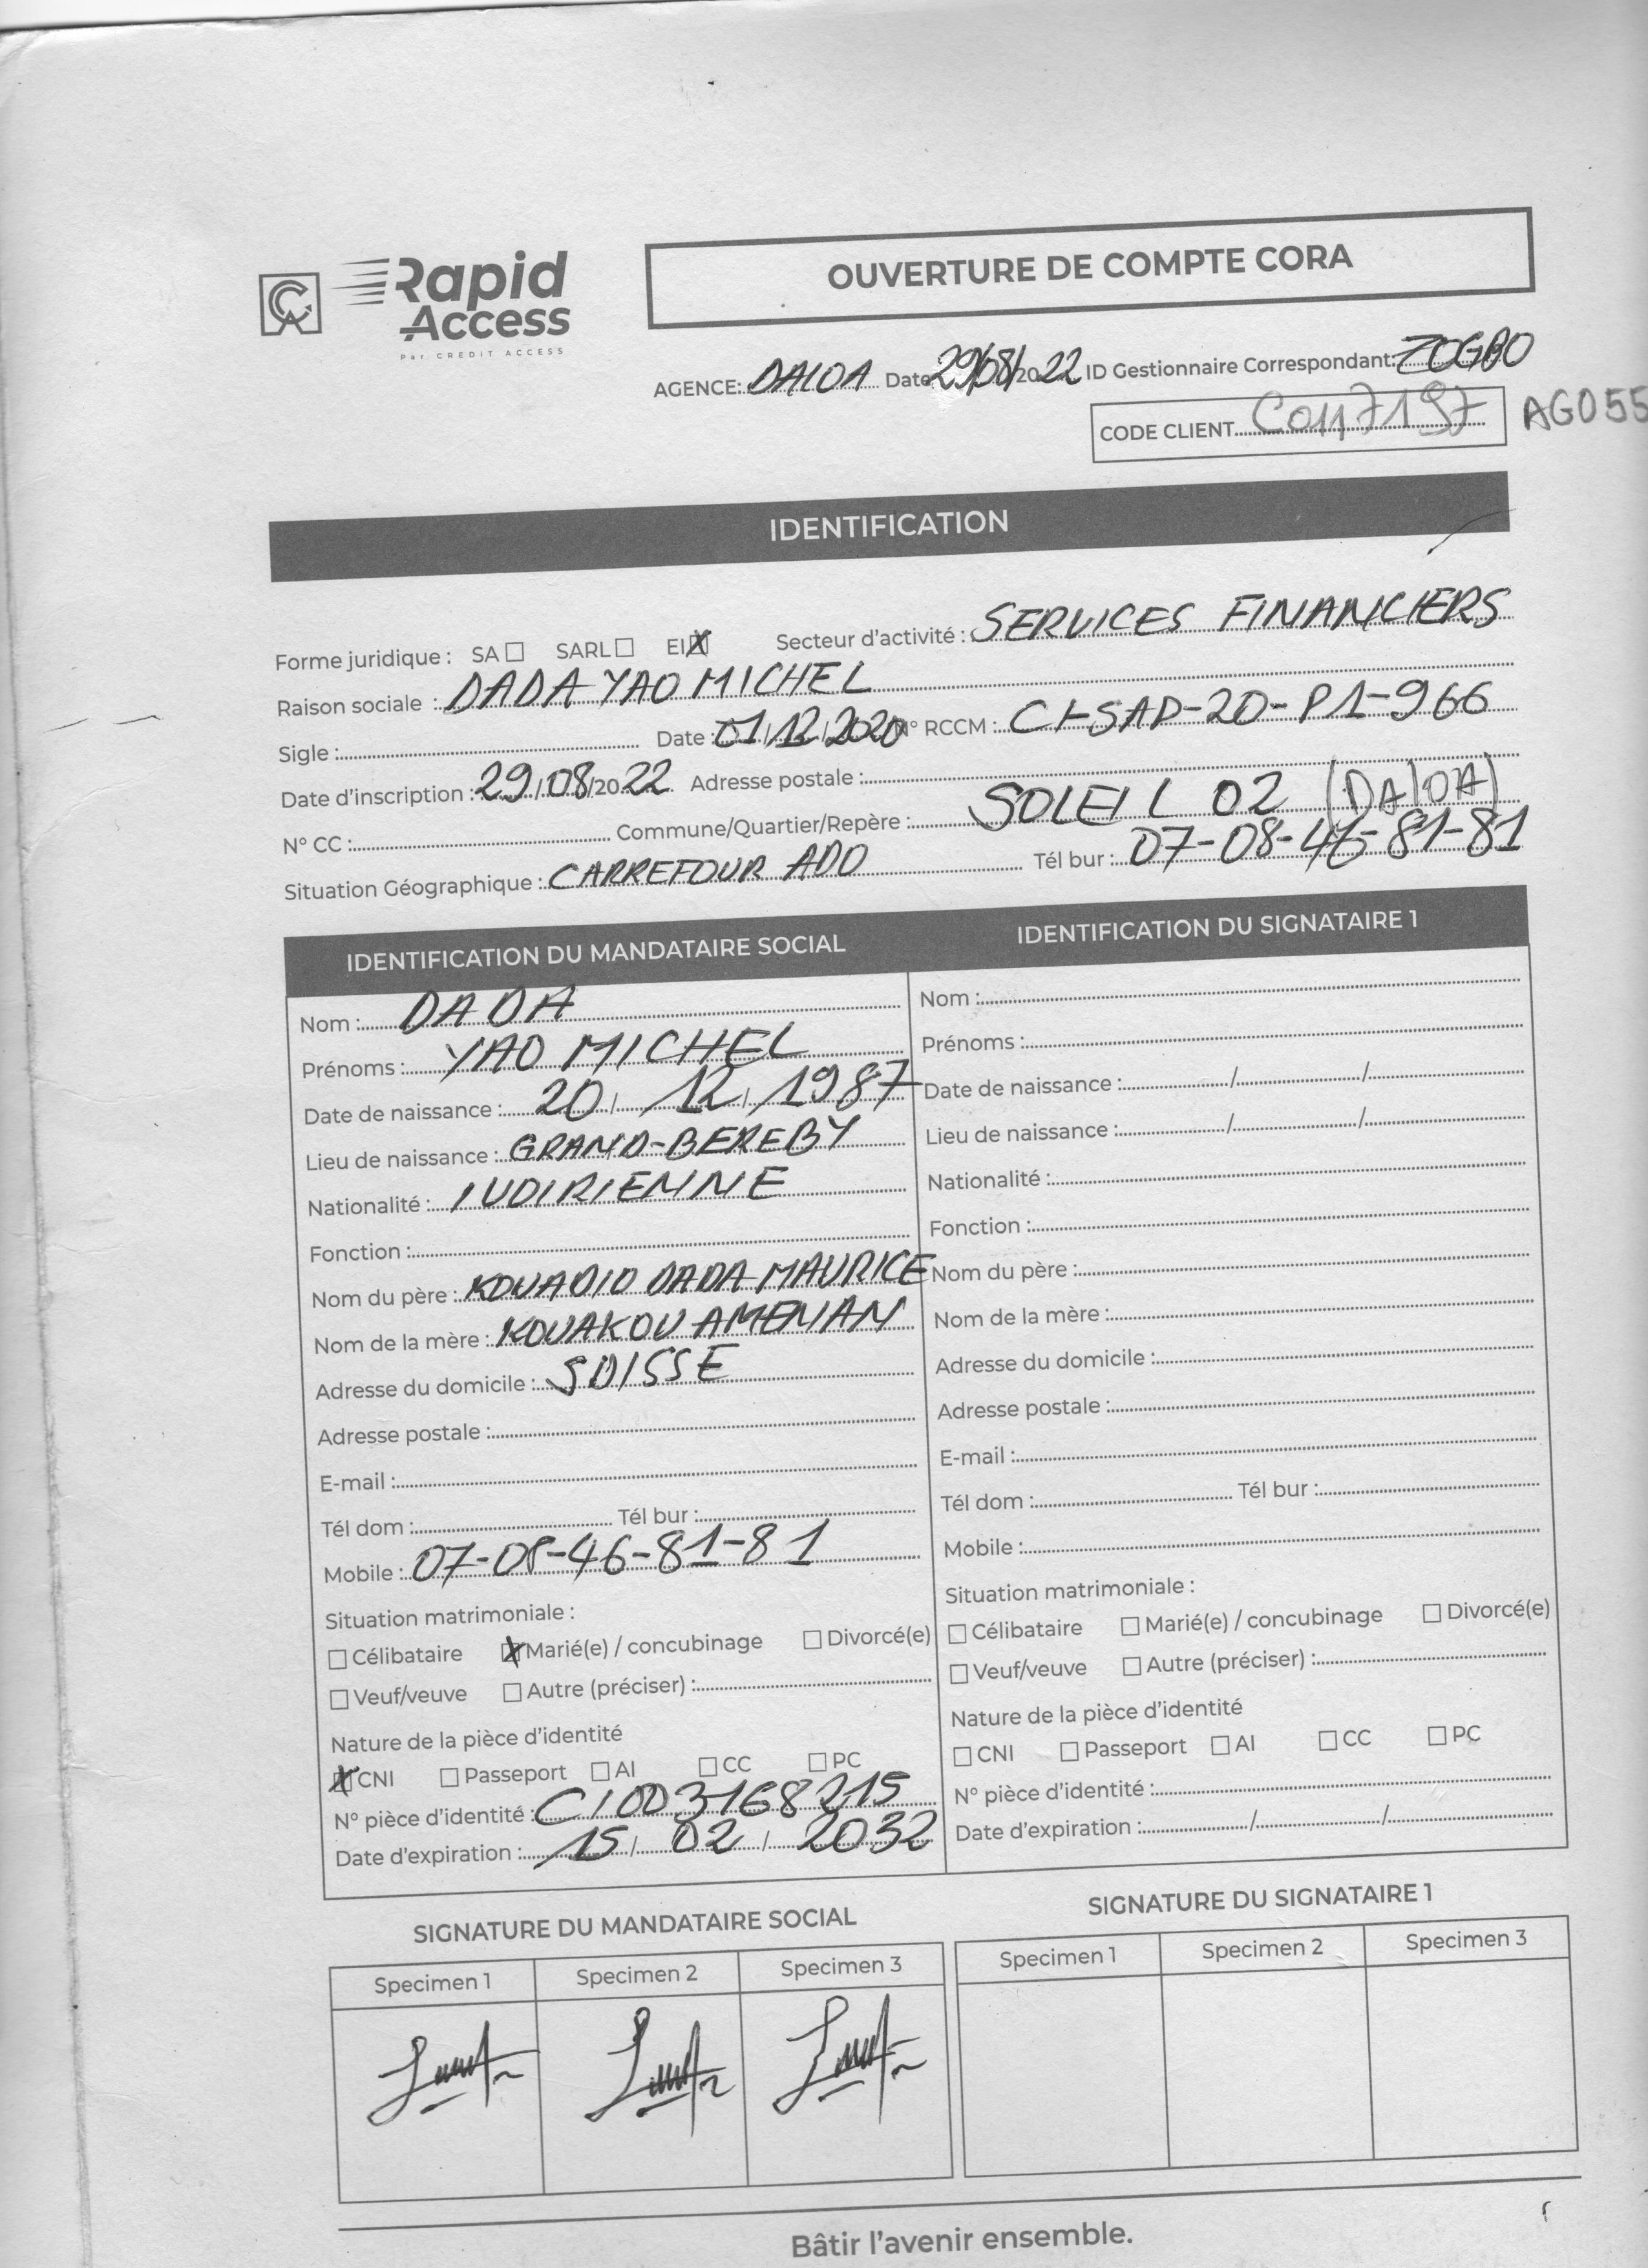 CA Rapid Access
Par CREDIT ACCESS
OUVERTURE DE COMPTE CORA
AGENCE: DALOA Date 29/08/2022 ID Gestionnaire Correspondant: ZOGBO
CODE CLIENT C0117197 AG055
IDENTIFICATION
Forme juridique : SA ☐ SARL ☐ EI ☒ Secteur d'activité : SERVICES FINANCIERS
Raison sociale : DADA YAO MICHEL
Sigle : Date : 01/12/2020 N° RCCM : CI-SAP-20-P1-966
Date d'inscription : 29/08/2022 Adresse postale :
N° CC : Commune/Quartier/Repère : SOLEIL 02 (DALOA)
Situation Géographique : CARREFOUR ADO Tél bur : 07-08-46-81-81
IDENTIFICATION DU MANDATAIRE SOCIAL
Nom : DADA
Prénoms : YAO MICHEL
Date de naissance : 20/12/1987
Lieu de naissance : GRAND-BEREBY
Nationalité : IVOIRIENNE
Fonction :
Nom du père : KOUADIO DADA MAURICE
Nom de la mère : KOUAKOU AMENAN
Adresse du domicile : SOISSE
Adresse postale :
E-mail :
Tél dom : Tél bur :
Mobile : 07-08-46-81-81
Situation matrimoniale :
☐ Célibataire ☒ Marié(e) / concubinage ☐ Divorcé(e)
☐ Veuf/veuve ☐ Autre (préciser) :
Nature de la pièce d'identité
☒ CNI ☐ Passeport ☐ AI ☐ CC ☐ PC
N° pièce d'identité : CI003168215
Date d'expiration : 15/02/2032
IDENTIFICATION DU SIGNATAIRE 1
Nom :
Prénoms :
Date de naissance : / /
Lieu de naissance : / /
Nationalité :
Fonction :
Nom du père :
Nom de la mère :
Adresse du domicile :
Adresse postale :
E-mail :
Tél dom : Tél bur :
Mobile :
Situation matrimoniale :
☐ Célibataire ☐ Marié(e) / concubinage ☐ Divorcé(e)
☐ Veuf/veuve ☐ Autre (préciser) :
Nature de la pièce d'identité
☐ CNI ☐ Passeport ☐ AI ☐ CC ☐ PC
N° pièce d'identité :
Date d'expiration : / /
SIGNATURE DU MANDATAIRE SOCIAL
Specimen 1 Specimen 2 Specimen 3
SIGNATURE DU SIGNATAIRE 1
Specimen 1 Specimen 2 Specimen 3
Bâtir l'avenir ensemble.